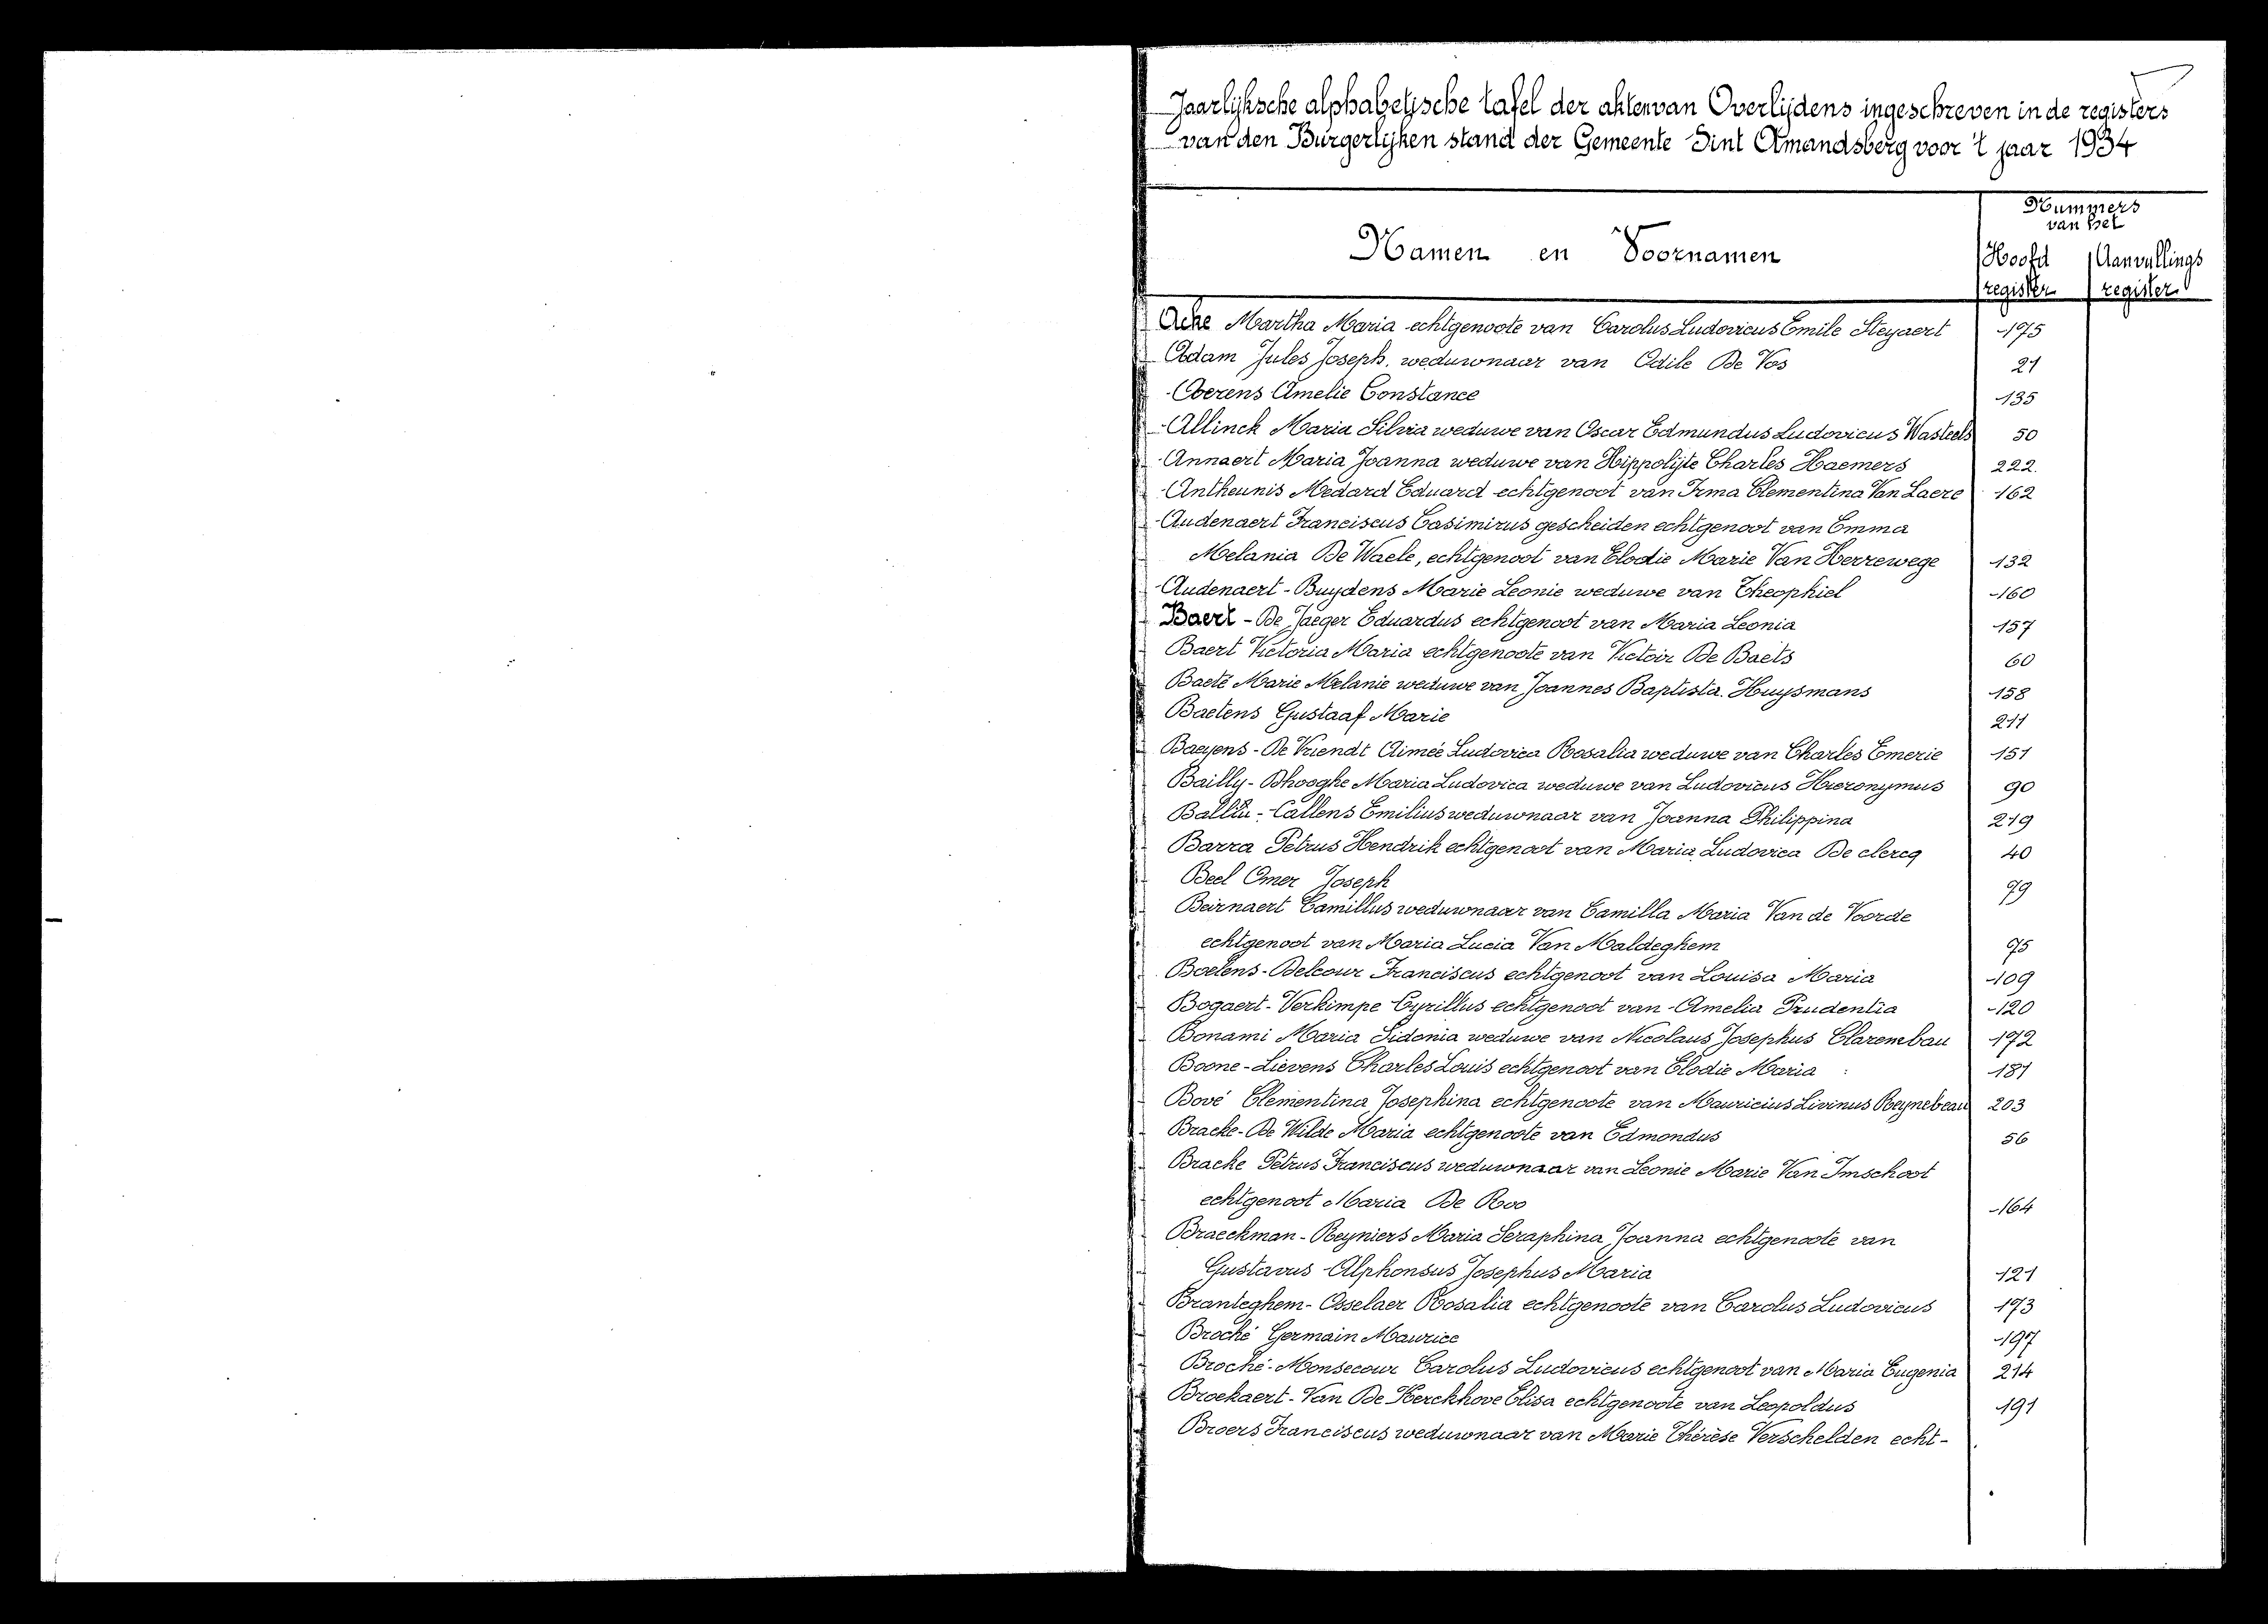 Jaarlijksche alphabetische tafel der akten van Overlijdens ingeschreven in de registers
van den Burgerlijken stand der Gemeente Sint Amandsberg voor 't jaar 1934
Nummers
van het
Namen en Voornamen
Hoofd Aanvullings
register register
Acke Martha Maria echtgenoote van Carolus Ludovicus Emile Steyaert 175
Adam Jules Joseph. weduwnaar van Odile De Vos 21
Aerens Amelie Constance 135
Allinck Maria Silvia weduwe van Oscar Edmundus Ludovicus Wasteels 50
Annaert Maria Joanna weduwe van Hippolijte Charles Haemers 222
Antheunis Medard Eduard echtgenoot van Irma Clementina Van Laere 162
Audenaert Franciscus Casimirus gescheiden echtgenoot van Emma
Melania De Waele, echtgenoot van Elodie Marie Van Herrewege 132
Audenaert - Buydens Marie Leonie weduwe van Theophiel 160
Baert - De Jaeger Eduardus echtgenoot van Maria Leonia 157
Baert Victoria Maria echtgenoote van Victoir De Baets 60
Baeté Marie Melanie weduwe van Joannes Baptista Huysmans 158
Baetens Gustaaf Marie 211
Baeyens - De Vriendt Aimée Ludovica Rosalia weduwe van Charles Emerie 151
Bailly - Dhooghe Maria Ludovica weduwe van Ludovicus Hieronymus 90
Balliu - Callens Emilius weduwnaar van Joanna Philippina 219
Barra Petrus Hendrik echtgenoot van Maria Ludovica De clercq 40
Beel Omer Joseph 79
Beirnaert Camillus weduwnaar van Camilla Maria Van de Voorde
echtgenoot van Maria Lucia Van Maldeghem 75
Boelens - Delcour Franciscus echtgenoot van Louisa Maria 109
Bogaert - Verkimpe Cyrillus echtgenoot van Amelia Prudentia 120
Bonami Maria Sidonia weduwe van Nicolaus Josephus Clarembau 172
Boone - Lievens Charles Louis echtgenoot van Elodie Maria 181
Bové Clementina Josephina echtgenoote van Mauricius Livinus Reynebeau 203
Bracke - De Wilde Maria echtgenoote van Edmondus 56
Bracke Petrus Franciscus weduwnaar van Leonie Marie Van Imschoot
echtgenoot Maria De Roo 164
Braeckman - Reyniers Maria Seraphina Joanna echtgenoote van
Gustavus Alphonsus Josephus Maria 121
Branteghem - Osselaer Rosalia echtgenoote van Carolus Ludovicus 173
Broché Germain Maurice 197
Broché - Monsecour Carolus Ludovicus echtgenoot van Maria Eugenia 214
Broekaert - Van De Kerckhove Elisa echtgenoote van Leopoldus 191
Broers Franciscus weduwnaar van Marie Thérèse Verschelden echt-